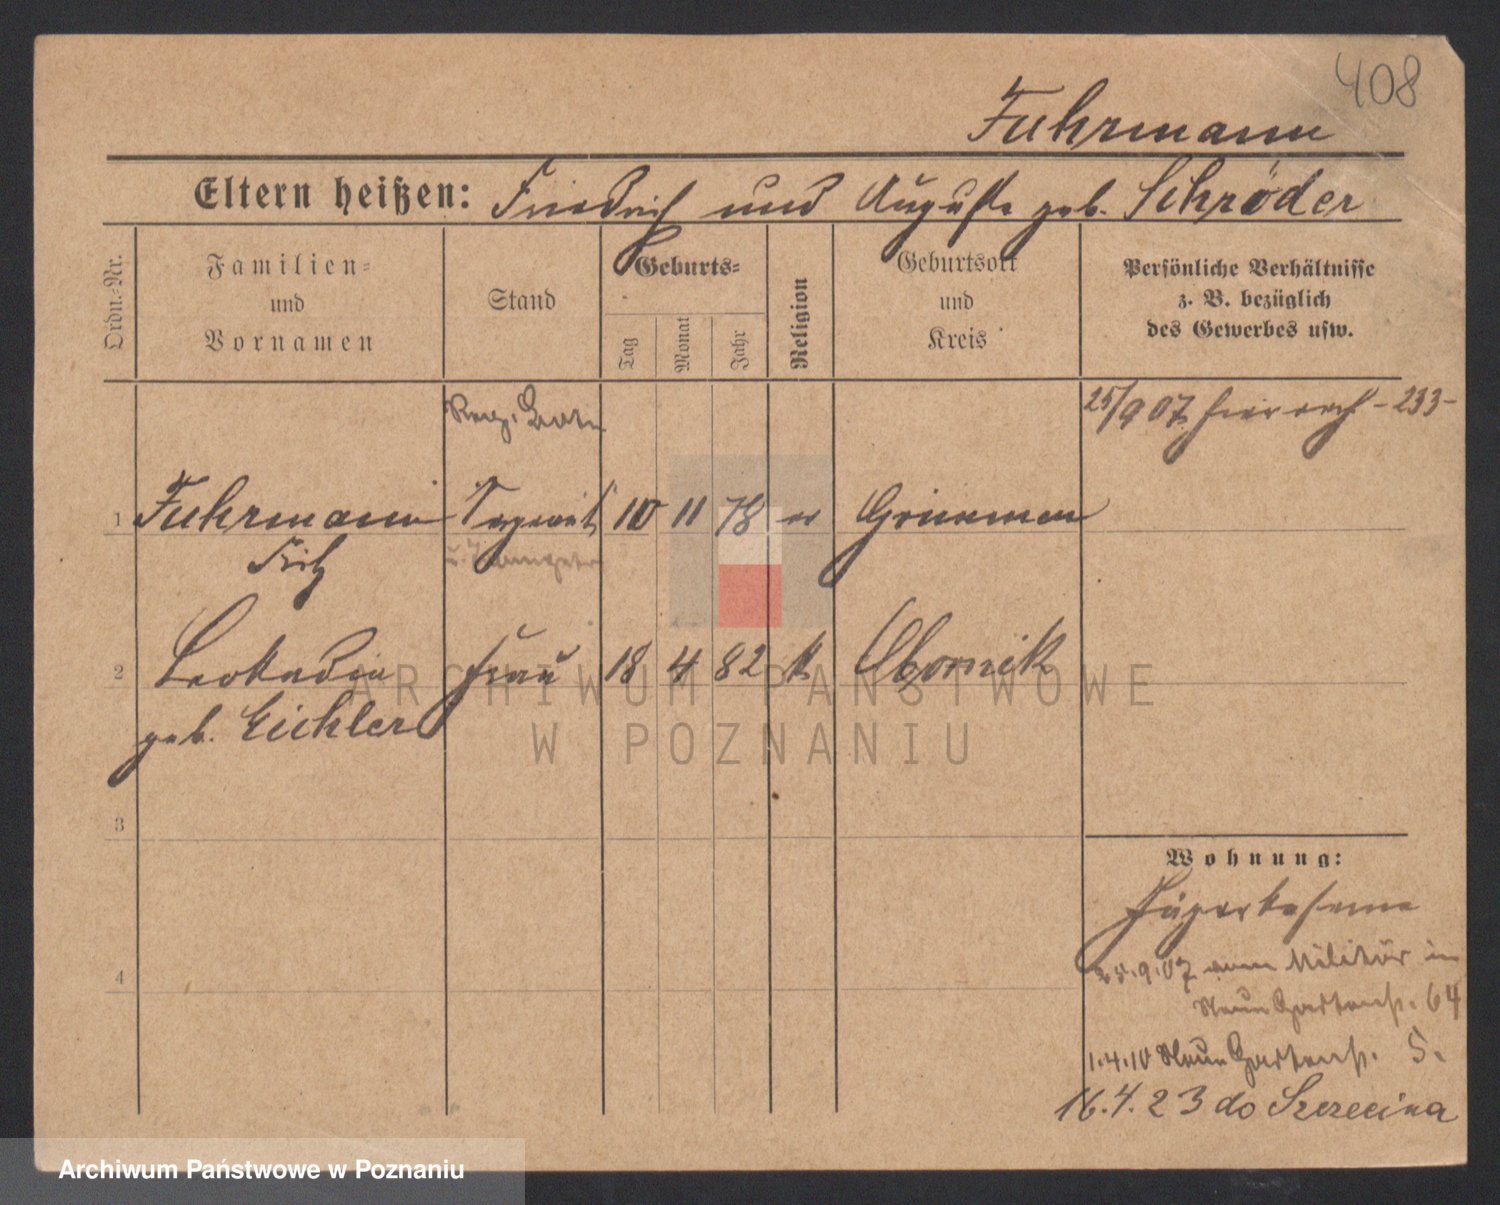 408
Fuhrmann
Eltern heißen: Friedrich und Auguste geb. Schröder
Ordn.-Nr.
Familien-
und
Vornamen
Stand
Geburts-
Tag
Monat
Jahr
Religion
Geburtsort
und
Kreis
Persönliche Verhältnisse
z. B. bezüglich
des Gewerbes usw.
25/9 07 hier
1 Fuhrmann Sergeant 10 11 78 ev
Fritz
2 Leokadia Frau 18 4 82 k Obornik
geb. Eichler
3
4
Wohnung:
Jägerkaserne
25.9.07 vom Militär in
Neue Gartenstr. 64
1.4.10 Neue Gartenstr. 5.
16.4.23 do Szczecina
ARCHIWUM PAŃSTWOWE
W POZNANIU
Archiwum Państwowe w Poznaniu